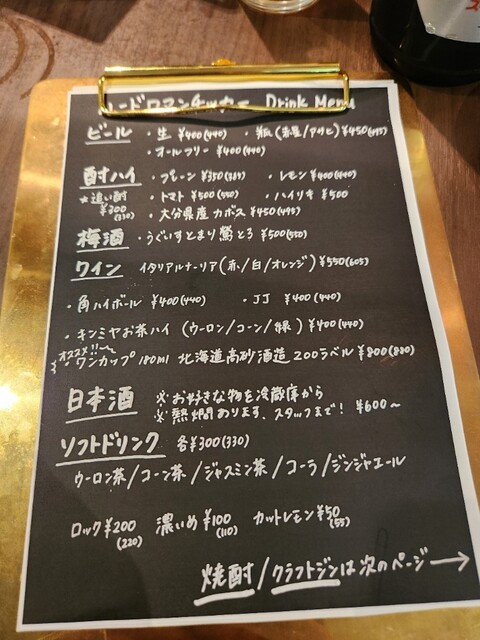 ハードロマンチッカー Drink Menu
ビール ・生 ¥400(440) ・瓶(赤星/アサヒ)¥450(495)
・オールフリー ¥400(440)
酎ハイ ・プレーン ¥350(385) ・レモン ¥400(440)
★追い酎 ¥300(330) ・トマト ¥500(550) ・ハイリキ ¥500
・大分県産カボス ¥450(495)
梅酒 ・うぐいすとまり鶯とろ ¥500(550)
ワイン イタリアルナーリア(赤/白/オレンジ)¥550(605)
・角ハイボール ¥400(440) ・JJ ¥400(440)
・キンミヤお茶ハイ (ウーロン/コーン/緑) ¥400(440)
オススメ!!
・ワンカップ 180ml 北海道高砂酒造 200ラベル ¥800(880)
日本酒 ※お好きな物を冷蔵庫から
※熱燗あります、スタッフまで! ¥600〜
ソフトドリンク 各¥300(330)
ウーロン茶/コーン茶/ジャスミン茶/コーラ/ジンジャエール
ロック¥200(220) 濃いめ¥100(110) カットレモン¥50(55)
焼酎/クラフトジンは次のページ→